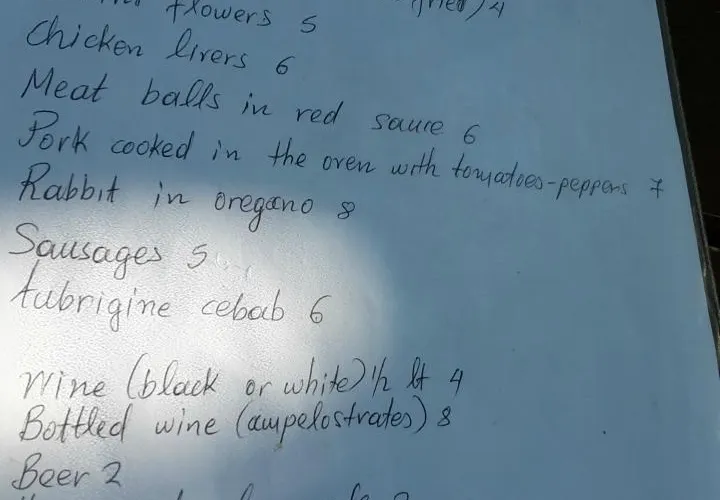 flowers 5
(fried) 4
Chicken livers 6
Meat balls in red sauce 6
Pork cooked in the oven with tomatoes-peppers 7
Rabbit in oregano 8
Sausages 5
Aubrigine cebab 6
Wine (black or white) 1/2 lt 4
Bottled wine (ampelostrates) 8
Beer 2